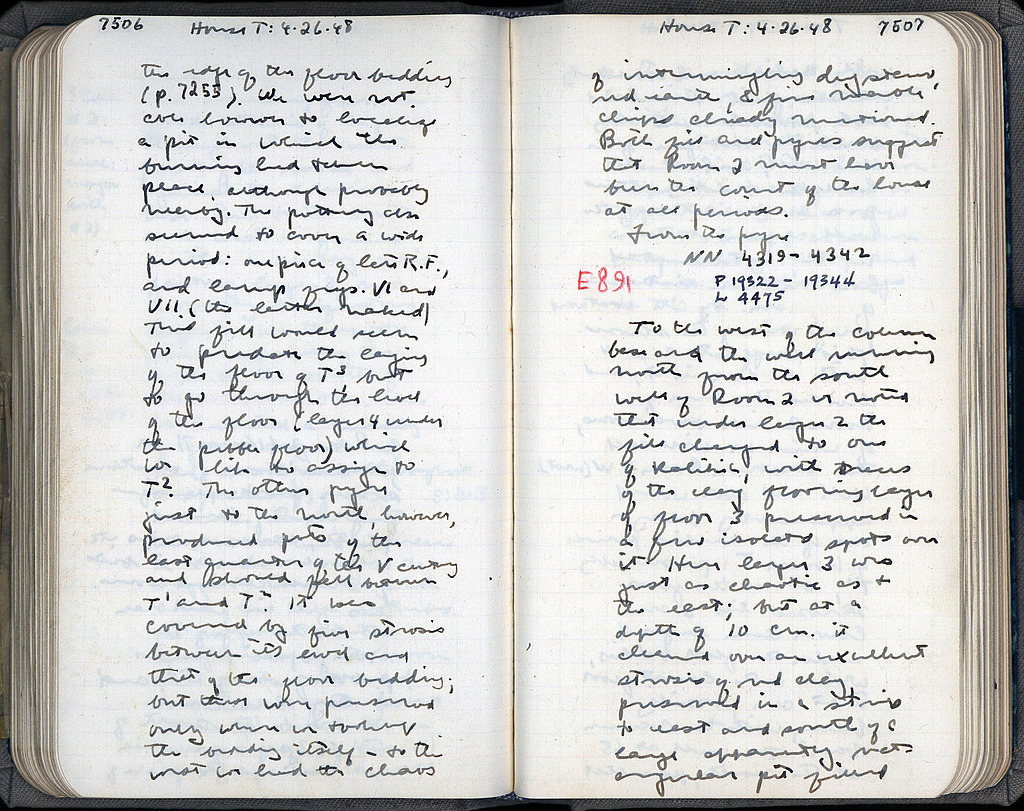 7506 House T: 4-26-48
the edge of the floor bedding
(p. 7255). We were not
ever however to localize
a pit in which the
burning had taken
place although probably
nearby. The pottery also
seemed to cover a wide
period: one piece of late R.F.,
and lamp frgs. VI and
VII (the latter
This fill would seem
to predate the laying
of the floor of T³ but
to go through the level
of the floor (layer 4 under
the pebble floor) which
we like to assign to
T². The other pyre
just to the north, however,
produced pots of the
last quarter of the V century
and should fall between
T¹ and T² It was
covered by five strosis
between its end and
that of the floor bedding;
but these were preserved
only where we took up
the bedding itself - to the
west we had the chaos
House T: 4-26-48 7507
of intermingling dug stereo,
red earth, & fine marble
chips already mentioned.
Both fill and pyres suggest
that Room 2 must have
been the court of the house
at all periods.
From the pyre
NN 4319-4342
E891
P 19322 - 19344
L 4475
To the west of the column
base and the wall running
north from the south
wall of Room 2 we noted
that under layer 2 the
fill changed to one
of kalitia, with traces
of the clay flooring layer
of floor 3 preserved in
a few isolated spots over
it. Here layer 3 was
just as chaotic as to
the east; but at a
depth of 10 cm. it
cleared over an excellent
strosis of red clay
preserved in a strip
to east and south of a
large apparently rect-
angular pit filled